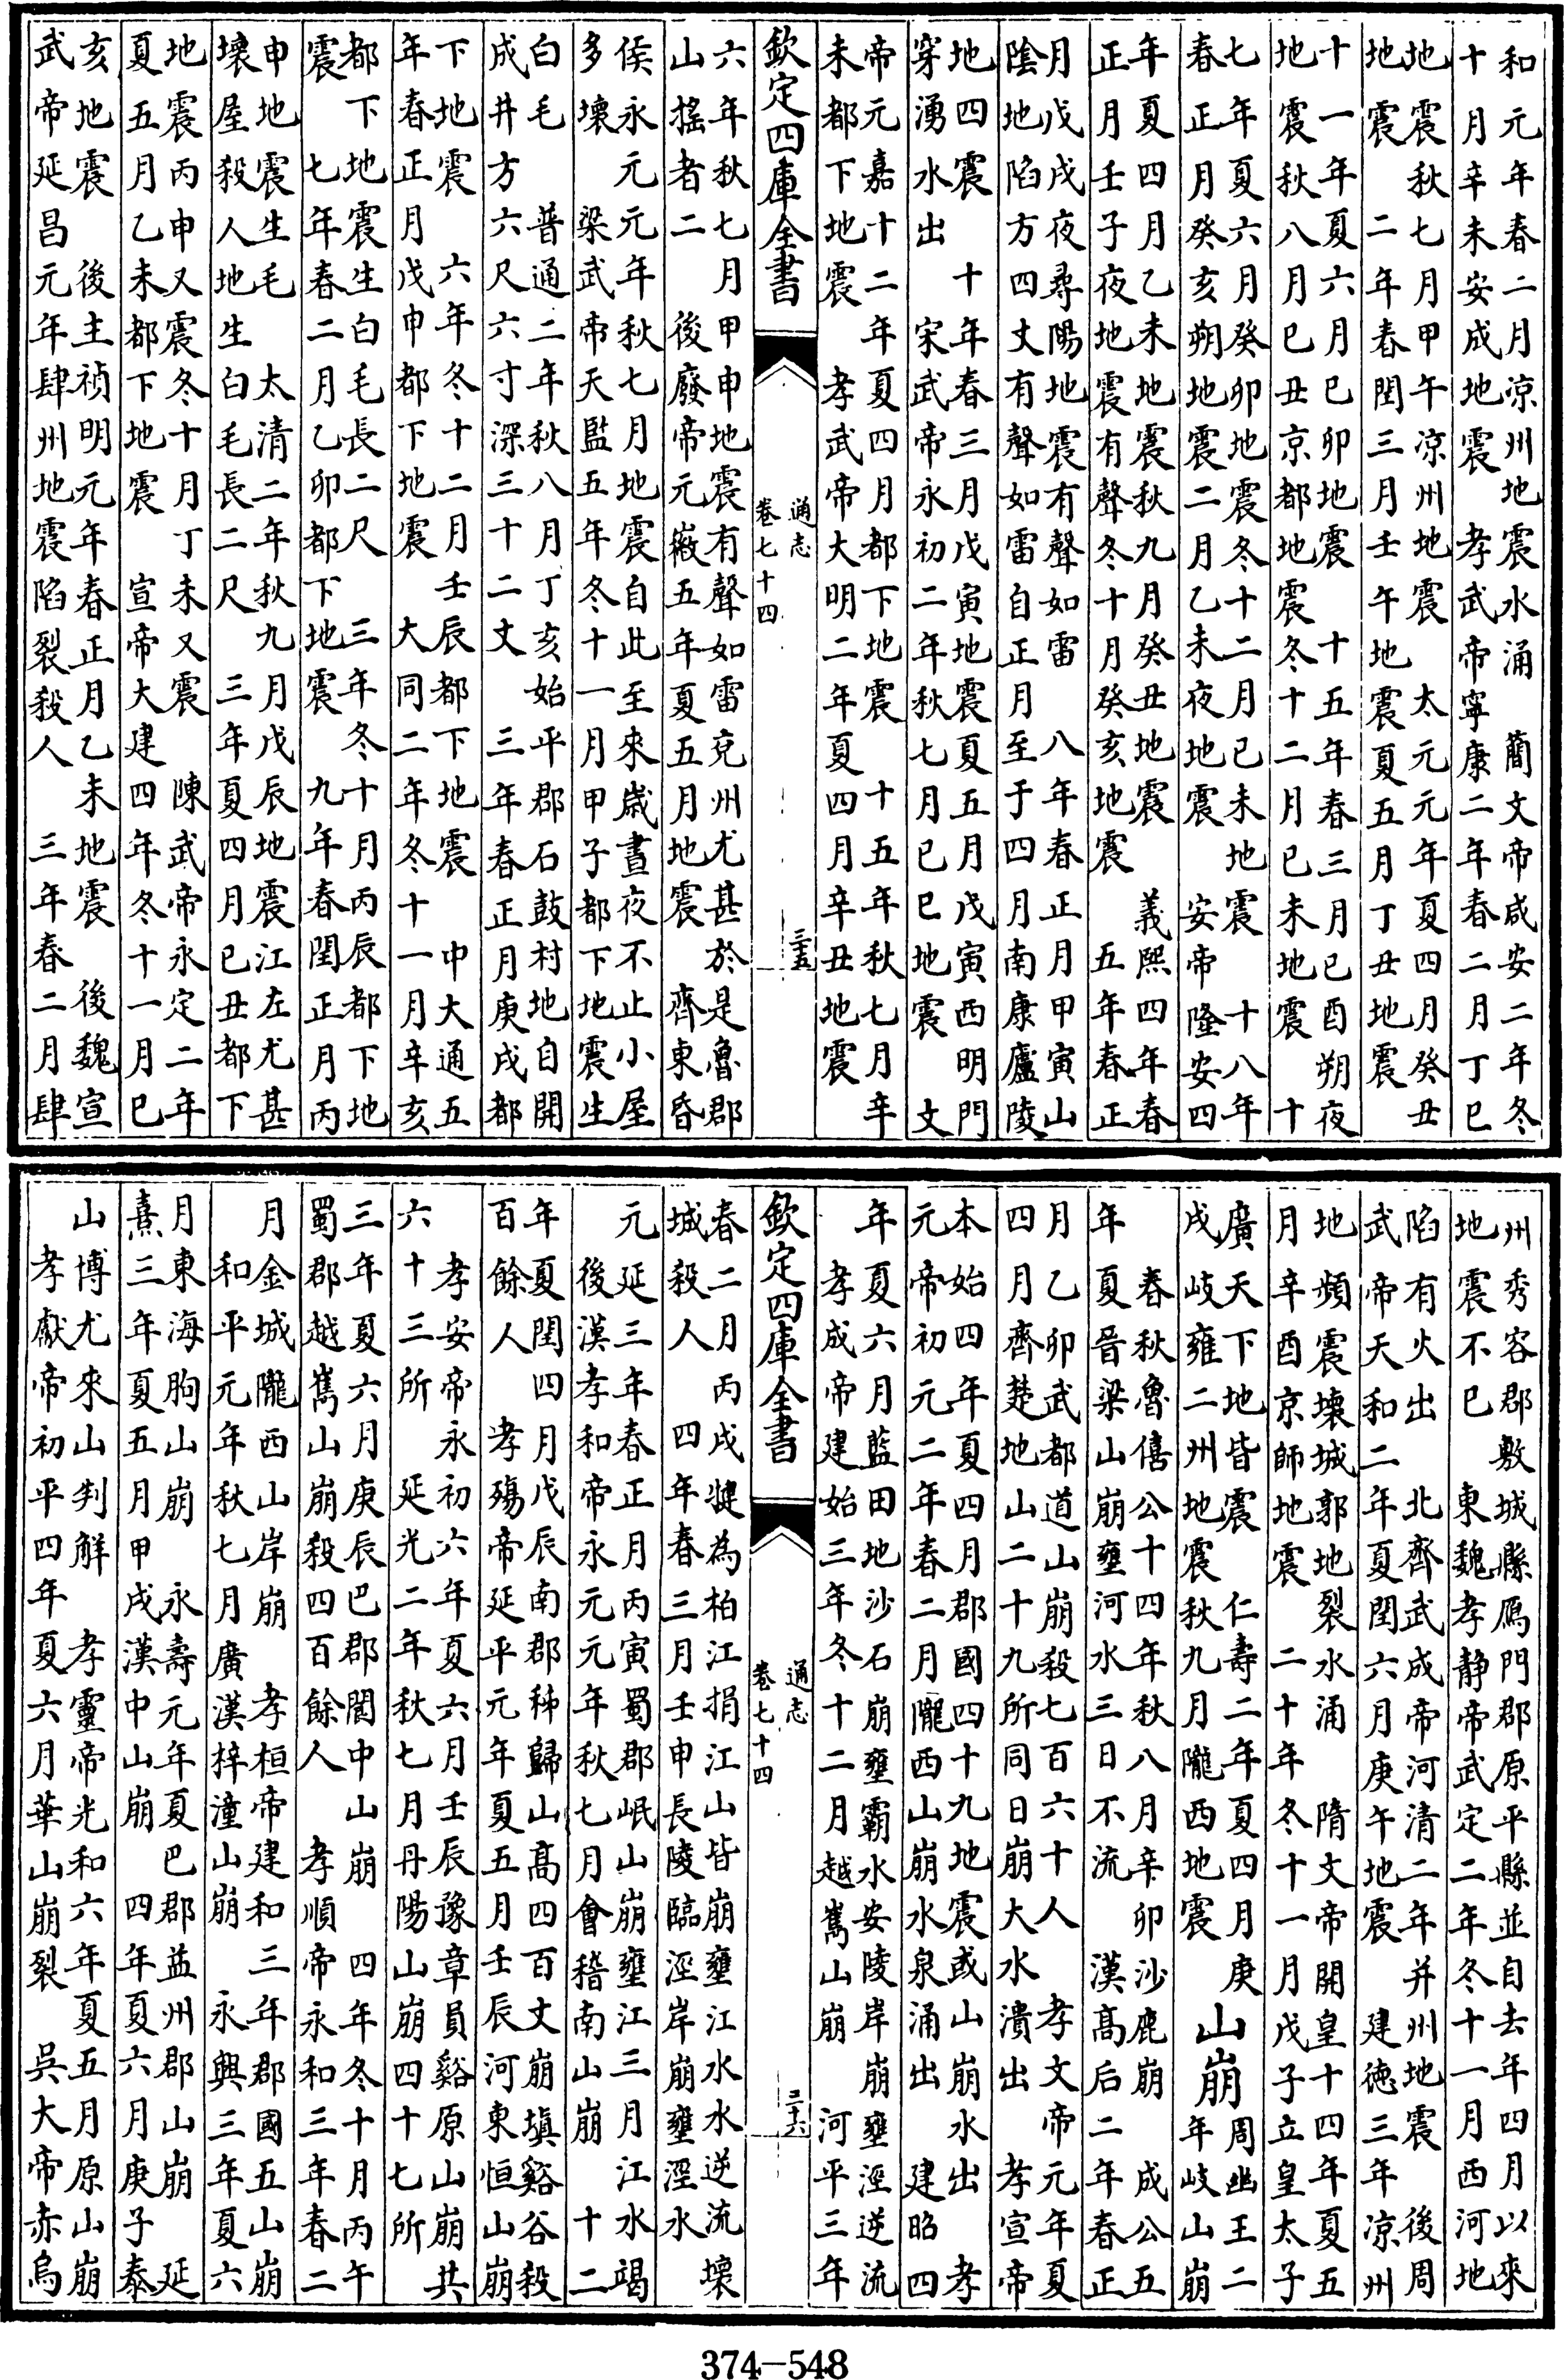 和元年春二月涼州地震水涌　簡文帝咸安二年冬
十月辛未安成地震　孝武帝寧康二年春二月丁巳
地震秋七月甲午涼州地震　太元元年夏四月癸丑
地震　二年春閏三月壬午地震夏五月丁丑地震
十一年夏六月己卯地震　十五年春三月己酉朔夜
地震秋八月己丑京都地震冬十二月己未地震　十
七年夏六月癸卯地震冬十二月己未地震　十八年
春正月癸亥朔地震二月乙未夜地震　安帝隆安四
年夏四月乙未地震秋九月癸丑地震　義熙四年春
正月壬子夜地震有聲冬十月癸亥地震　五年春正
月戊戌夜尋陽地震有聲如雷　八年春正月甲寅山
陰地陷方四丈有聲如雷自正月至于四月南康廬陵
地四震　十年春三月戊寅地震夏五月戊寅西明門
穿湧水出　宋武帝永初二年秋七月己巳地震　文
帝元嘉十二年夏四月都下地震　十五年秋七月辛
未都下地震　孝武帝大明二年夏四月辛丑地震
欽定四庫全書　通志卷七十四　三十五
六年秋七月甲申地震有聲如雷兗州尤甚於是魯郡
山搖者二　後廢帝元徽五年夏五月地震　齊東昏
侯永元元年秋七月地震自此至來歲晝夜不止小屋
多壞　梁武帝天監五年冬十一月甲子都下地震生
白毛　普通二年秋八月丁亥始平郡石鼓村地自開
成井方六尺六寸深三十二丈　三年春正月庚戌都
下地震　六年冬十二月壬辰都下地震　中大通五
年春正月戊申都下地震　大同二年冬十一月辛亥
都下地震生白毛長二尺　三年冬十月丙辰都下地
震　七年春二月乙卯都下地震　九年春閏正月丙
申地震生毛　太清二年秋九月戊辰地震江左尤甚
壞屋殺人地生白毛長二尺　三年夏四月己丑都下
地震丙申又震冬十月丁未又震　陳武帝永定二年
夏五月乙未都下地震　宣帝大建四年冬十一月己
亥地震　後主禎明元年春正月乙未地震　後魏宣
武帝延昌元年肆州地震陷裂殺人　三年春二月肆
州秀容郡敷城縣鴈門郡原平縣並自去年四月以來
地震不已　東魏孝静帝武定二年冬十一月西河地
陷有火出　北齊武成帝河清二年并州地震　後周
武帝天和二年夏閏六月庚午地震　建徳三年涼州
地頻震壞城郭地裂水涌　隋文帝開皇十四年夏五
月辛酉京師地震　二十年冬十一月戊子立皇太子
廣天下地皆震　仁壽二年夏四月庚
戌岐雍二州地震秋九月隴西地震
山崩
周幽王二
年岐山崩
春秋魯僖公十四年秋八月辛卯沙鹿崩　成公五
年夏晉梁山崩壅河水三日不流　漢高后二年春正
月乙卯武都道山崩殺七百六十人　孝文帝元年夏
四月齊楚地山二十九所同日崩大水潰出　孝宣帝
本始四年夏四月郡國四十九地震或山崩水出　孝
元帝初元二年春二月隴西山崩水泉涌出　建昭四
年夏六月藍田地沙石崩壅霸水安陵岸崩壅涇逆流
孝成帝建始三年冬十二月越嶲山崩　河平三年
欽定四庫全書　通志卷七十四　三十六
春二月丙戌犍為柏江捐江山皆崩壅江水水逆流壞
城殺人　四年春三月壬申長陵臨涇岸崩壅涇水
元延三年春正月丙寅蜀郡岷山崩壅江三月江水竭
後漢孝和帝永元元年秋七月會稽南山崩　十二
年夏閏四月戊辰南郡秭歸山髙四百丈崩塡谿谷殺
百餘人　孝殤帝延平元年夏五月壬辰河東恒山崩
孝安帝永初六年夏六月壬辰豫章員谿原山崩共
六十三所　延光二年秋七月丹陽山崩四十七所
三年夏六月庚辰巴郡閬中山崩　四年冬十月丙午
蜀郡越嶲山崩殺四百餘人　孝順帝永和三年春二
月金城隴西山岸崩　孝桓帝建和三年郡國五山崩
和平元年秋七月廣漢梓潼山崩　永興三年夏六
月東海朐山崩　永壽元年夏巴郡益州郡山崩　延
熹三年夏五月甲戌漢中山崩　四年夏六月庚子泰
山博尤來山判解　孝靈帝光和六年夏五月原山崩
孝獻帝初平四年夏六月華山崩裂　吳大帝赤烏
374-548